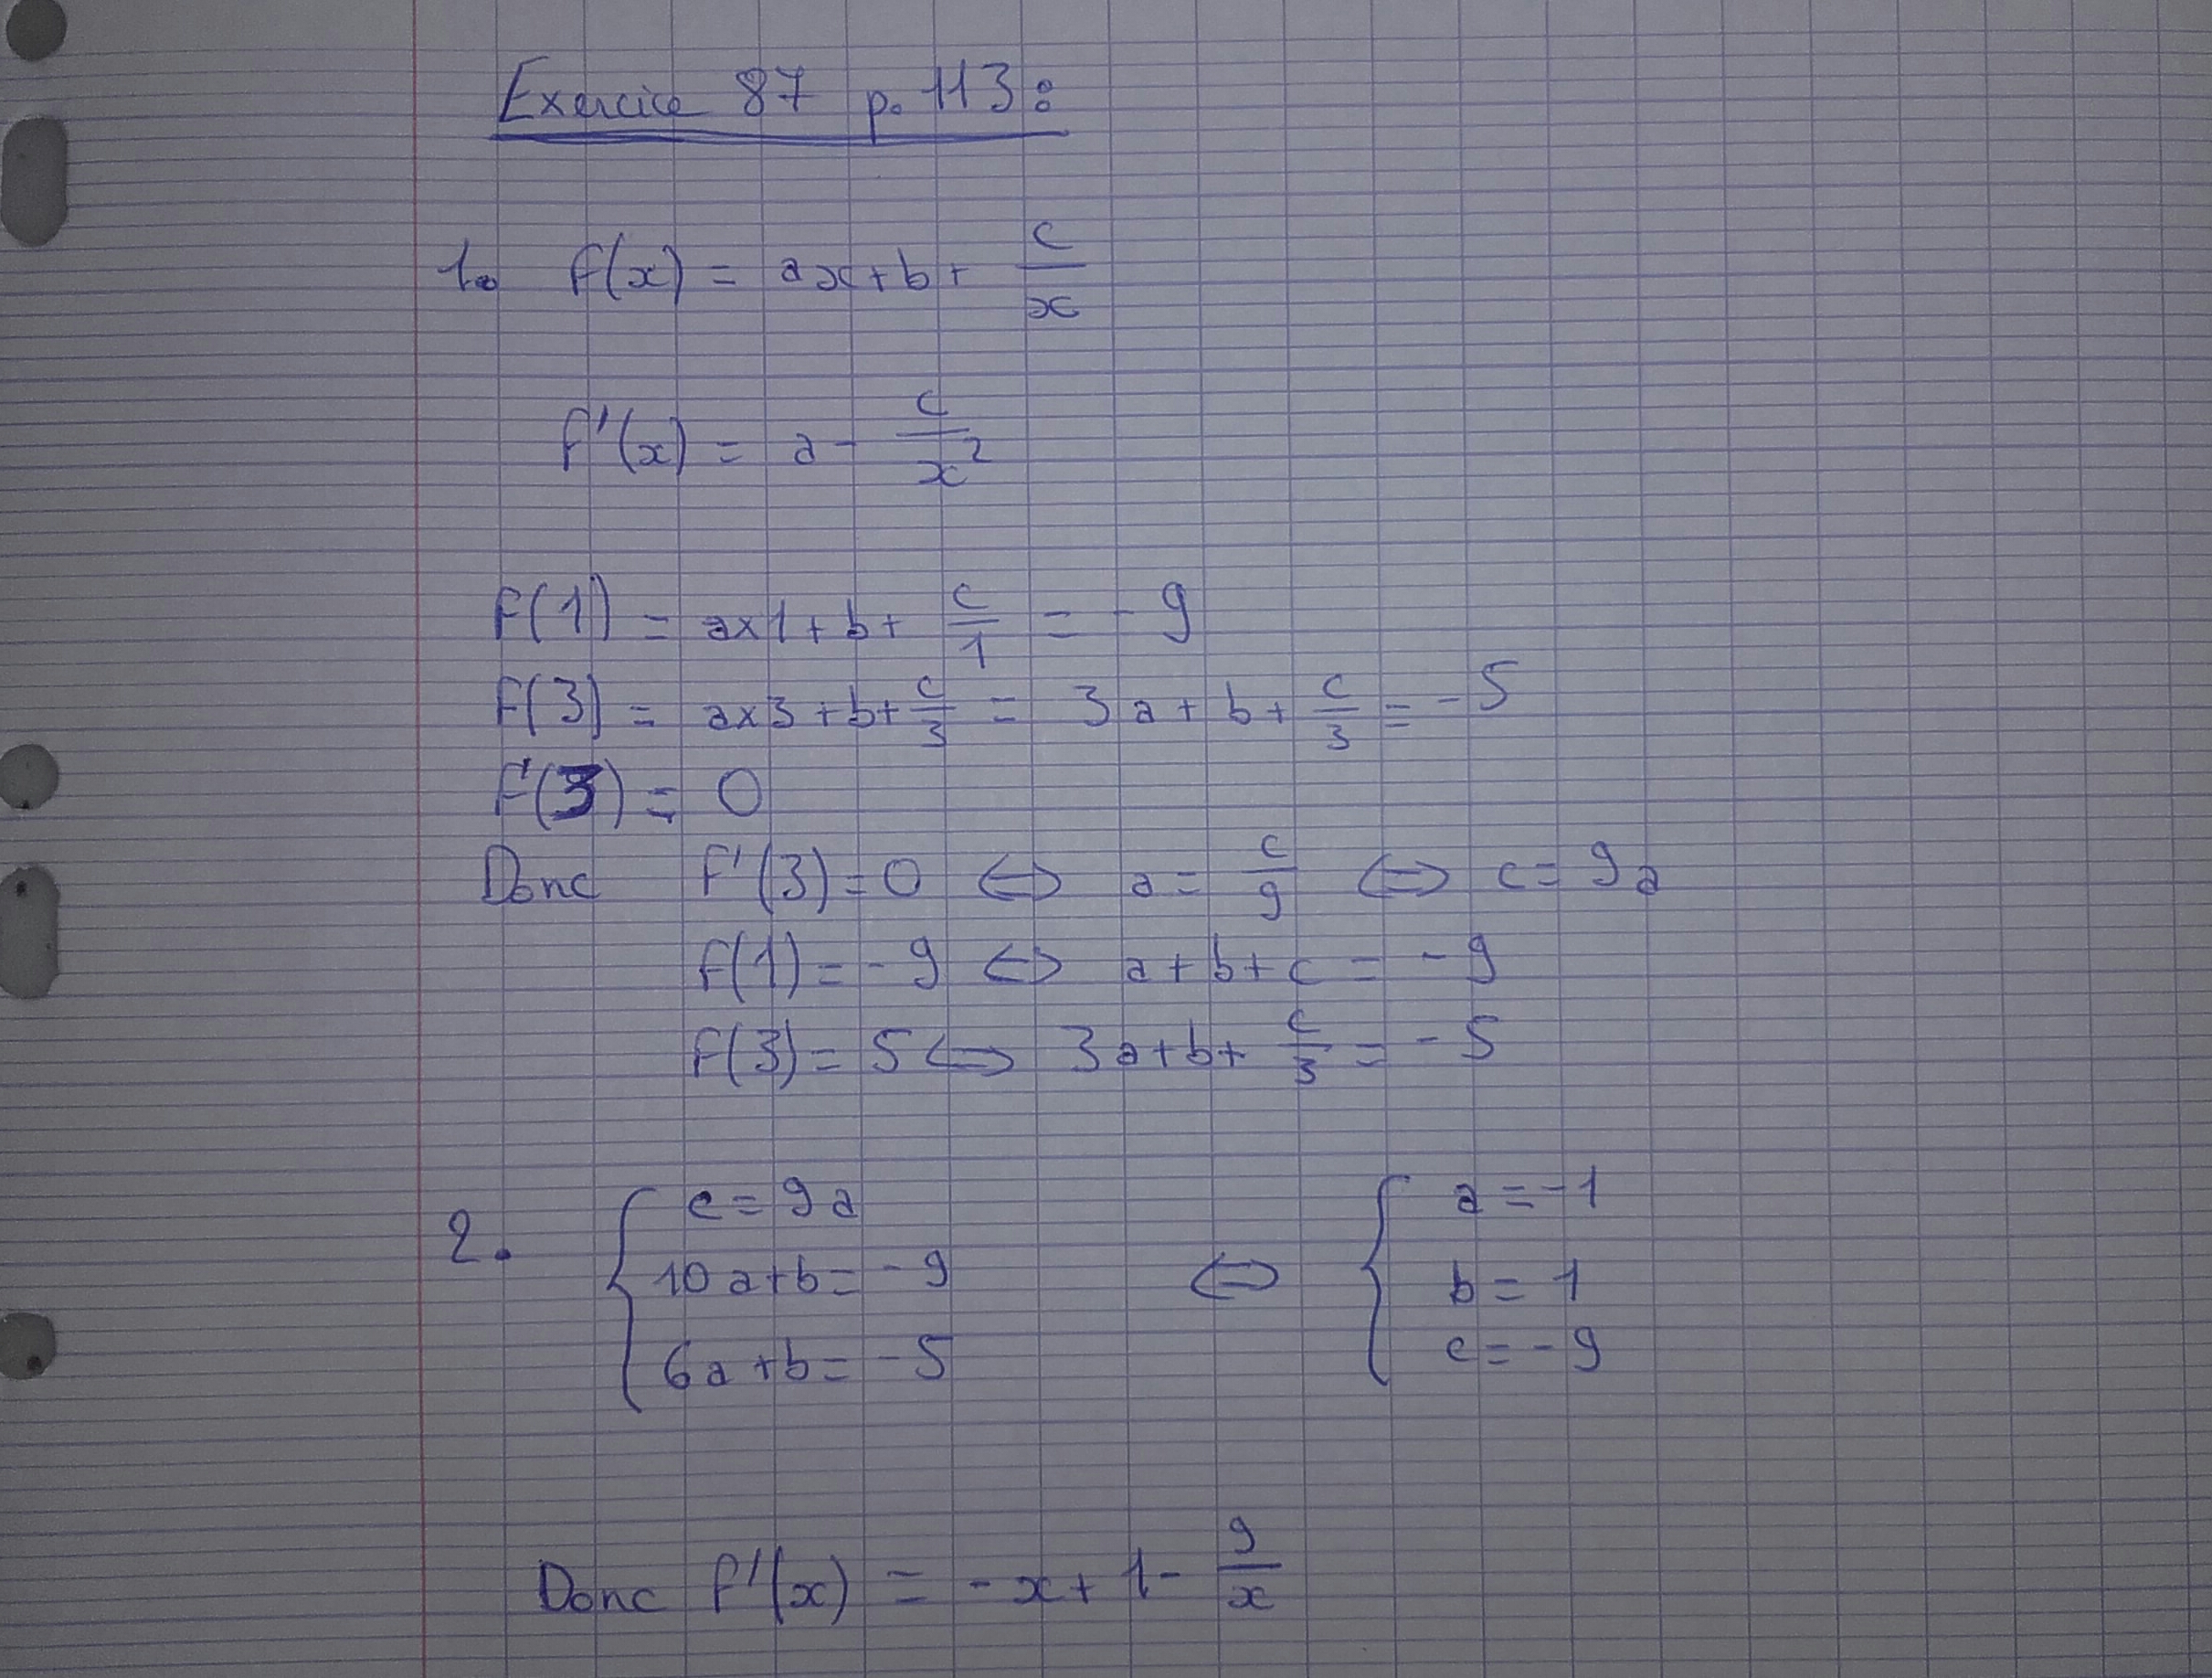 Exercice 87 p. 113 :
1. f(x) = ax + b + c/x
f'(x) = a - c/x²
f(1) = a×1 + b + c/1 = -9
f(3) = a×3 + b + c/3 = 3a + b + c/3 = -5
f'(3) = 0
Donc f'(3) = 0 ⟺ a = c/9 ⟺ c = 9a
f(1) = -9 ⟺ a + b + c = -9
f(3) = 5 ⟺ 3a + b + c/3 = -5
2. { c = 9a
10a + b = -9 ⟺
6a + b = -5
{ a = -1
b = 1
c = -9
Donc f'(x) = -x + 1 - 9/x